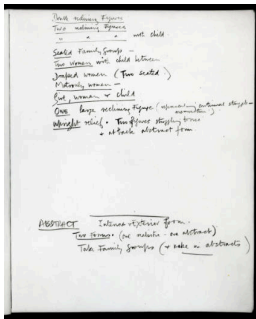 reclining Figures
Two reclining Figures
" " " with child
Seated Family Groups –
Two Women with child between
women (Two Seated)
Maternity women –
women & child
One large reclining Figure
Upright relief • Two figures struggling
+ attack abstract form
ABSTRACT Interior & Exterior forms.
Two Forms • (one realistic – one abstract)
Take Family Groups (+ make abstracts)